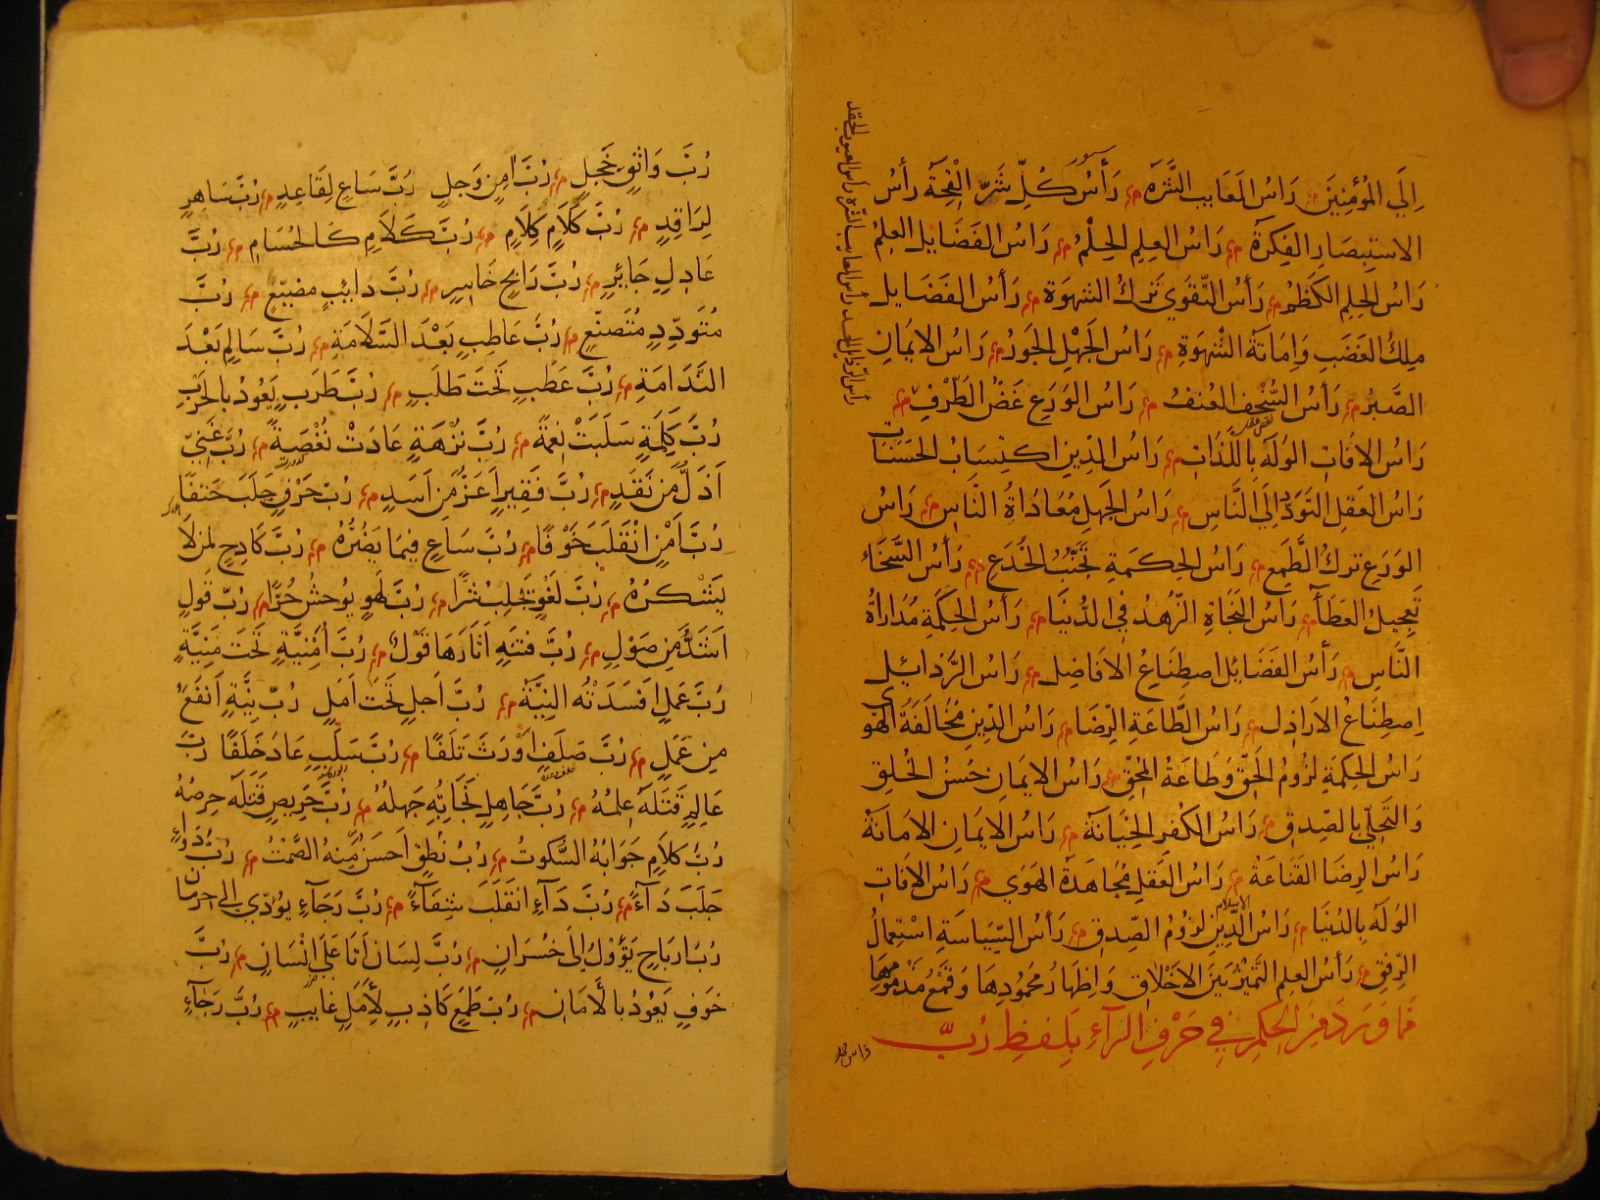 اِلَي المُؤمِنِينَ رَاسُ المَعَايب الشَّرَه رَأسُ كُلِّ شَرّ الْقِحَة رأسُ
الاستِبصَارِ الفِكرَة رَاسُ العِلِم الحِلْمُ رَاسُ الفَضَايِل العِلمُ
رَاسُ الحِلِم الكَظمُ رَأسُ التّقوَي تَركُ الشهوَة رَأسُ الفَضَايل
مِلكُ الغَضَبِ وَاِمَاتَةُ الشَّهوَةِ رَاسُ الجَهلِ الجَورُ رَاسُ الايمَانِ
الصَّبرُ رَأسُ السُّخفِ العُنفُ رَاسُ الوَرَعِ غَضُّ الطَّرْفِ
رَاسُ الافَاتِ الوَلَه بِاللَّذَاتِ رَاسُ الدِّينِ اكتِسَابُ الحَسَنَات
رَاسُ العَقلِ التَوَدّدُ اِلَي النَّاسِ رَاسُ الجَهلِ مُعَادَاةُ النَّاسِ رَاسُ
الوَرَعِ تركُ الطَّمَعِ رَاسُ الحِكمَةِ تَجَنُّبُ الخُدَعِ رَأسُ السَّخَاءِ
تَعجِيلُ العَطَآءِ رَاسُ النَجَاةِ الزّهدُ فِي الدُّنيَا رَأسُ الحِكمَةِ مُدَارَاةُ
النَّاسِ رَأسُ الفَضَايُل اصِطِنَاعُ الافَاضِلِ رَاسُ الرَّذائِلِ
اِصطِنَاعُ الارَاذِل رَاسُ الطَّاعَةِ الرِّضَا رَاسُ الدِّينِ مُخَالَفَةُ الهَوي
رَاسُ الحِكمَةِ لزُومُ الحَقِّ وَطَاعَةُ المُحِقّ رَاسُ الايمَانِ حُسنُ الخُلقِ
وَالتَحَلِّي بالصّدِقِ رَاسُ الكُفرِ الخِيَانَةُ رَاسُ الايمَانِ الامَانَةُ
رَاسُ الرِضَا القَنَاعَةُ رَاسُ العَقلِ مُجَاهَدَةُ الهَوَي رَاسُ الافَاتِ
الوَلَهُ بِالدُنيَا رَاسُ الدِّينِ لزُومُ الصّدِقِ رَأسُ السِّيَاسَةِ استِعمَالُ
الرّفِقِ رَأسُ العِلمِ التَميِيزُ بَينَ الاخلَاقِ وَاِظهَارُ مَحمُودِهَا وَقَمعُ مَذمُومِهَا
مما وَرَدَ مِنَ الحِكمِ فِي حَرْفِ الرَآءِ بِلَفظِ رُبَّ
رأس الرّذايل الحسد رأس المعايب الشّره رأس العيوب الحقد
رُبَّ وَاثِقٍ خَجِلٍ رُبَّ آمِنٍ وَجِلٍ رُبَّ سَاعٍ لِقَاعِدٍ رُبَّ سَاهِرٍ
لِرَاقِدٍ رُبَّ كَلَامٍ كِلَامٍ رُبَّ كَلَامِ كَالحُسَامِ رُبَّ
عَادِلٍ جَائِرٍ رُبَّ رَابِحٍ خَاسِرٍ رُبَّ دَايِبٍ مضيّعٍ رُبَّ
مُتَودِّدٍ مُتَصَنّعٍ رُبَّ عَاطِبٍ بَعْدَ السَّلَامَةِ رُبَّ سَالِمٍ بَعْدَ
النَّدَامَةِ رُبَّ عَطَبٍ تَحتَ طَلَبٍ رُبَّ طَرَبٍ يَعُودُ بِالحَرَبِ
رُبَّ كَلِمَةٍ سَلَبَتْ نِعمَةً رُبَّ نُزهَةٍ عَادَتْ نُغْصَةً رُبَّ غَنِيّ
اَذَلُّ مِن نَقَدٍ رُبَّ فَقِيرٍ اَعَزُّ مِن اَسَدٍ رُبّ حَرْفٍ جَلَبَ حَتفًا
رُبَّ اَمْنٍ انْقَلَبَ خَوْفًا رُبَّ سَاعٍ فِيمَا يَضُرُّهُ رُبَّ كَادِحٍ لِمَن لَا
يَشْكُرُهُ رُبَّ لَغْوٍ يَجلِبُ شَرًّا رُبَّ لَهوٍ يُوحِشُ حُرًّا رُبّ قَولٍ
اَشَدُّ مِن صَوْلٍ رُبَّ فتنَةٍ اَثَارَهَا قَوْلٌ رُبَّ اُمْنِيَّةٍ تَحتَ مَنِيَّةٍ
رُبَّ عَمَلٍ اَفسَدَتْه النِيَّةُ رُبَّ اَجلٍ تَحتَ اَمَلٍ رُبّ نِيَّةٍ اَنفَعُ
مِن عَمَلٍ رُبَّ صَلَفٍ اَورَثَ تَلَفًا رُبَّ سَلَبٍ عَادَ خَلَفًا رُبَّ
عَالِمٍ قَتَلَهُ عِلمُهُ رُبَّ جَاهِلٍ نَجَاتهِ جَهلُهُ رُبَّ حَرِيصٍ قَتَلَه حِرصُهُ
رُبَّ كلَامٍ جَوَابُهُ السُّكوتُ رُبَّ نُطقٍ اَحسَنُ مِّنهُ الصَّمتُ رُبَّ دَوآءٍ
جَلَبَ دَآءً رُبَّ دَآءٍ انقَلَبَ شِفَآءً رُبَّ رَجَآءٍ يؤدّي الي حرمان
رُبَّ اربَاحٍ يَؤُولُ اِلَى خُسْرَانٍ رُبَّ لِسَان اَتَا عَلَي اِنْسَانٍ رُبَّ
خَوفٍ يَعُودُ بالأمَانِ رُبَّ طَمَعٍ كَاذبٍ لِأَمَلٍ غايبٍ رُبَّ رَجَآءٍ